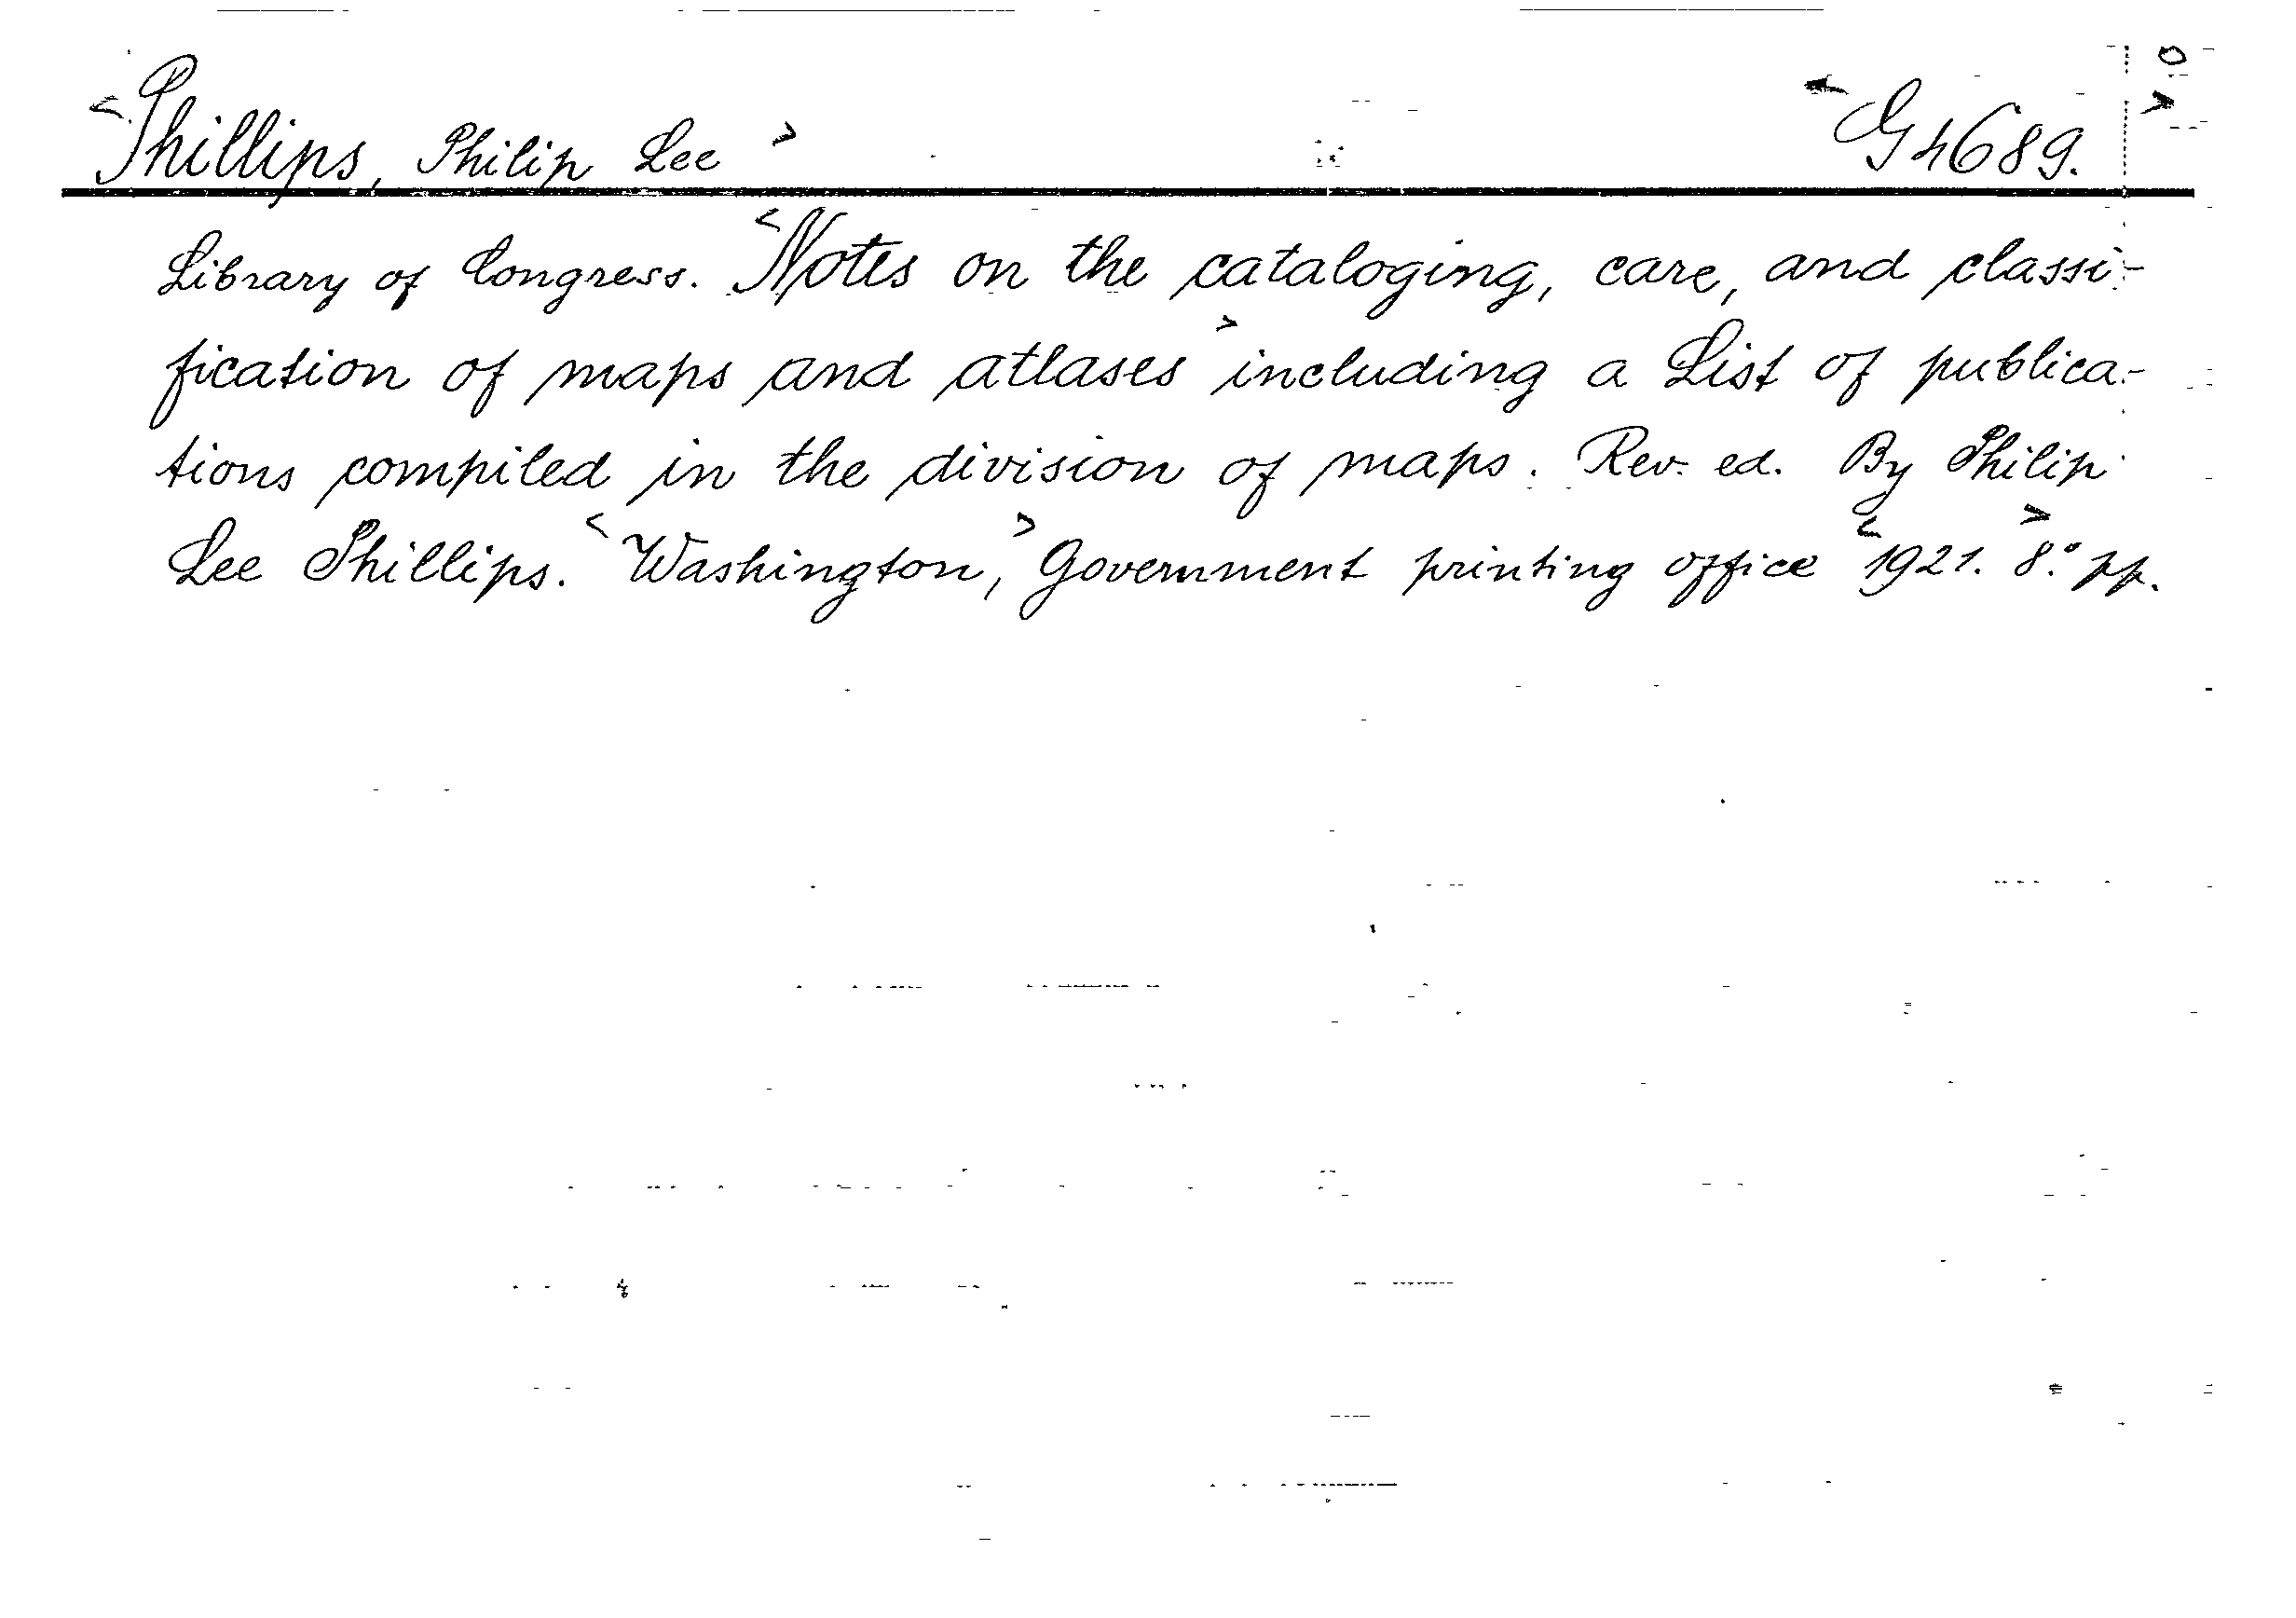 <Phillips, Philip Lee> <G4689.>
Library of Congress. <Notes on the cataloging, care, and classi-
fication of maps and atlases> including a List of publica-
tions compiled in the division of maps. Rev. ed. By Philip
Lee Phillips. <Washington,> Government printing office <1921. 8.°> pp.